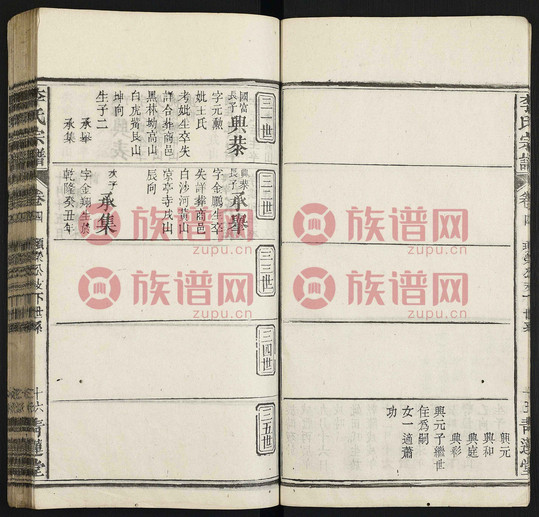 李氏宗譜
興元
興和
興庭
興彰
興元子繼世
任爲嗣
女一適蕭
功
三一世
國富
長子
興恭
字元勲
妣王氏
考妣生卒失
詳合葬商邑
黑林坳高山
白虎觜艮山
坤向
生子二
承舉
承集
三二世
興恭
長子
承舉
字金鵬生卒
失詳葬商邑
白沙河黃山
凉亭寺戌山
辰向
次子
承集
字金翔生
乾隆癸丑年
三三世
三四世
三五世
李氏宗譜
卷四
十六
青蓮堂
族谱网
zupu.cn
族谱网
zupu.cn
族谱网
zupu.cn
族谱网
zupu.cn